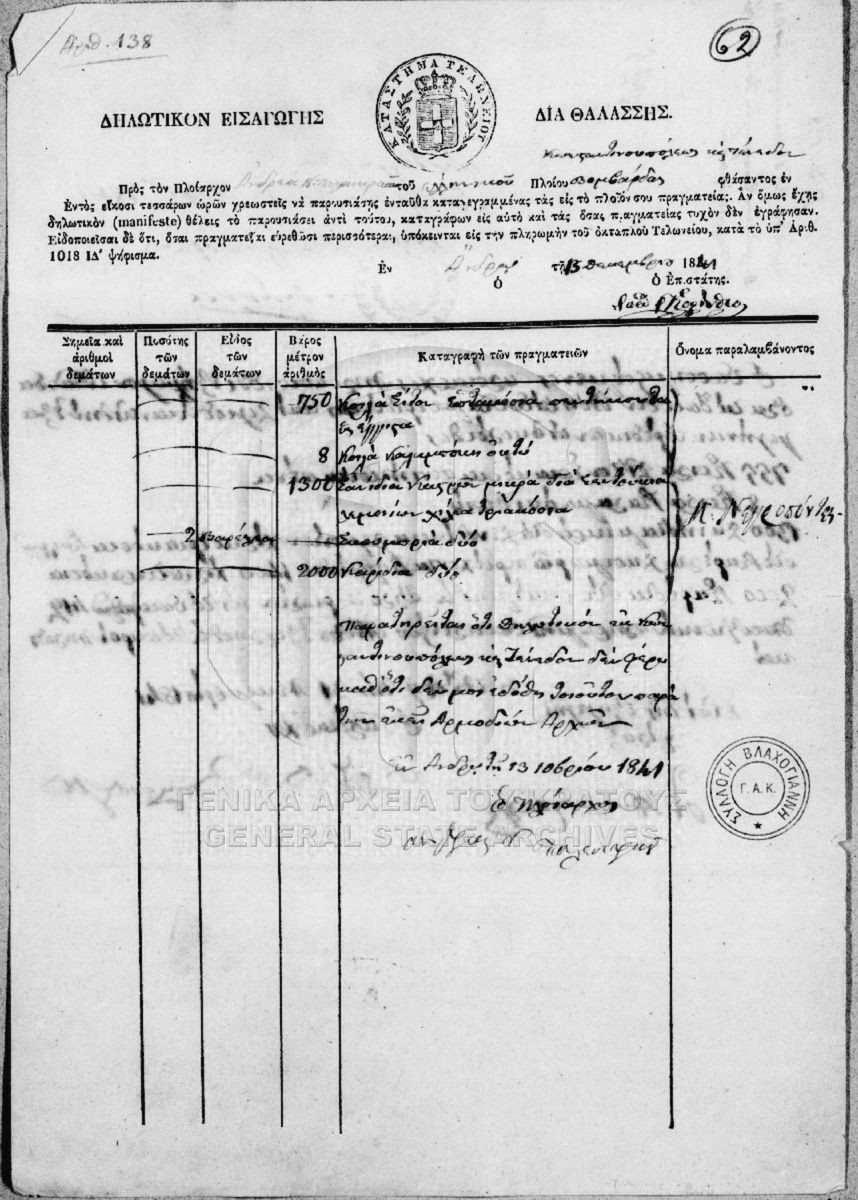 Ἀριθ. 138
62
ΚΑΤΑΣΤΗΜΑ ΤΕΛΩΝΕΙΟΥ
ΔΗΛΩΤΙΚΟΝ ΕΙΣΑΓΩΓΗΣ ΔΙΑ ΘΑΛΑΣΣΗΣ.
Κωνσταντινουπόλεως
Πρὸς τὸν Πλοίαρχον Ἀνδρέα τοῦ Πλοίου φθάσαντος ἐν
Ἐντὸς εἴκοσι τεσσάρων ὡρῶν χρεωστεῖς νὰ παρουσιάσῃς ἐνταῦθα καταγεγραμμένας τὰς εἰς τὸ πλοῖόν σου πραγματείας. Ἂν ὅμως ἔχῃς
δηλωτικὸν (manifeste) θέλεις τὸ παρουσιάσει ἀντὶ τούτου, καταγράφων εἰς αὐτὸ καὶ τὰς ὅσας πραγματείας τυχὸν δὲν ἐγράφησαν.
Εἰδοποιεῖσαι δὲ ὅτι, ὅσαι πραγματεῖαι εὑρεθῶσι περισσότεραι, ὑπόκεινται εἰς τὴν πληρωμὴν τοῦ ὀκταπλοῦ Τελωνείου, κατὰ τὸ ὑπ' Ἀριθ.
1018 ΙΔ' ψήφισμα.
Ἐν Ἄνδρῳ τῇ 13 Δεκεμβρίου 1841
Ὁ Ὁ Ἐπιστάτης.
Σημεῖα καὶ ἀριθμοὶ δεμάτων
Ποσότης τῶν δεμάτων
Εἶδος τῶν δεμάτων
Βάρος μέτρον ἀριθμὸς
Καταγραφὴ τῶν πραγματειῶν
Ὄνομα παραλαμβάνοντος
750 Κοιλὰ Σῖτον ἑπτακόσια πεντήκοντα
8 Κοιλὰ ὀκτὼ
1300 Σανίδια μικρὰ διὰ
χίλια τριακόσια
2 βαρέλια δύο
2000 Καρύδια δύο
Παρατηρεῖται ὅτι δηλωτικὸν ἐκ Κων
σταντινουπόλεως Τένεδον δὲν φέρω
καθότι δὲν μοὶ ἐδόθη τοιοῦτον παρὰ
τῶν ἐκεῖ Ἁρμοδίων Ἀρχῶν
Ἐν Ἄνδρῳ τῇ 13 10βρίου 1841
ὁ Πλοίαρχος
ΣΥΛΛΟΓΗ ΒΛΑΧΟΓΙΑΝΝΗ
Γ.Α.Κ.
ΓΕΝΙΚΑ ΑΡΧΕΙΑ ΤΟΥ ΚΡΑΤΟΥΣ
GENERAL STATE ARCHIVES